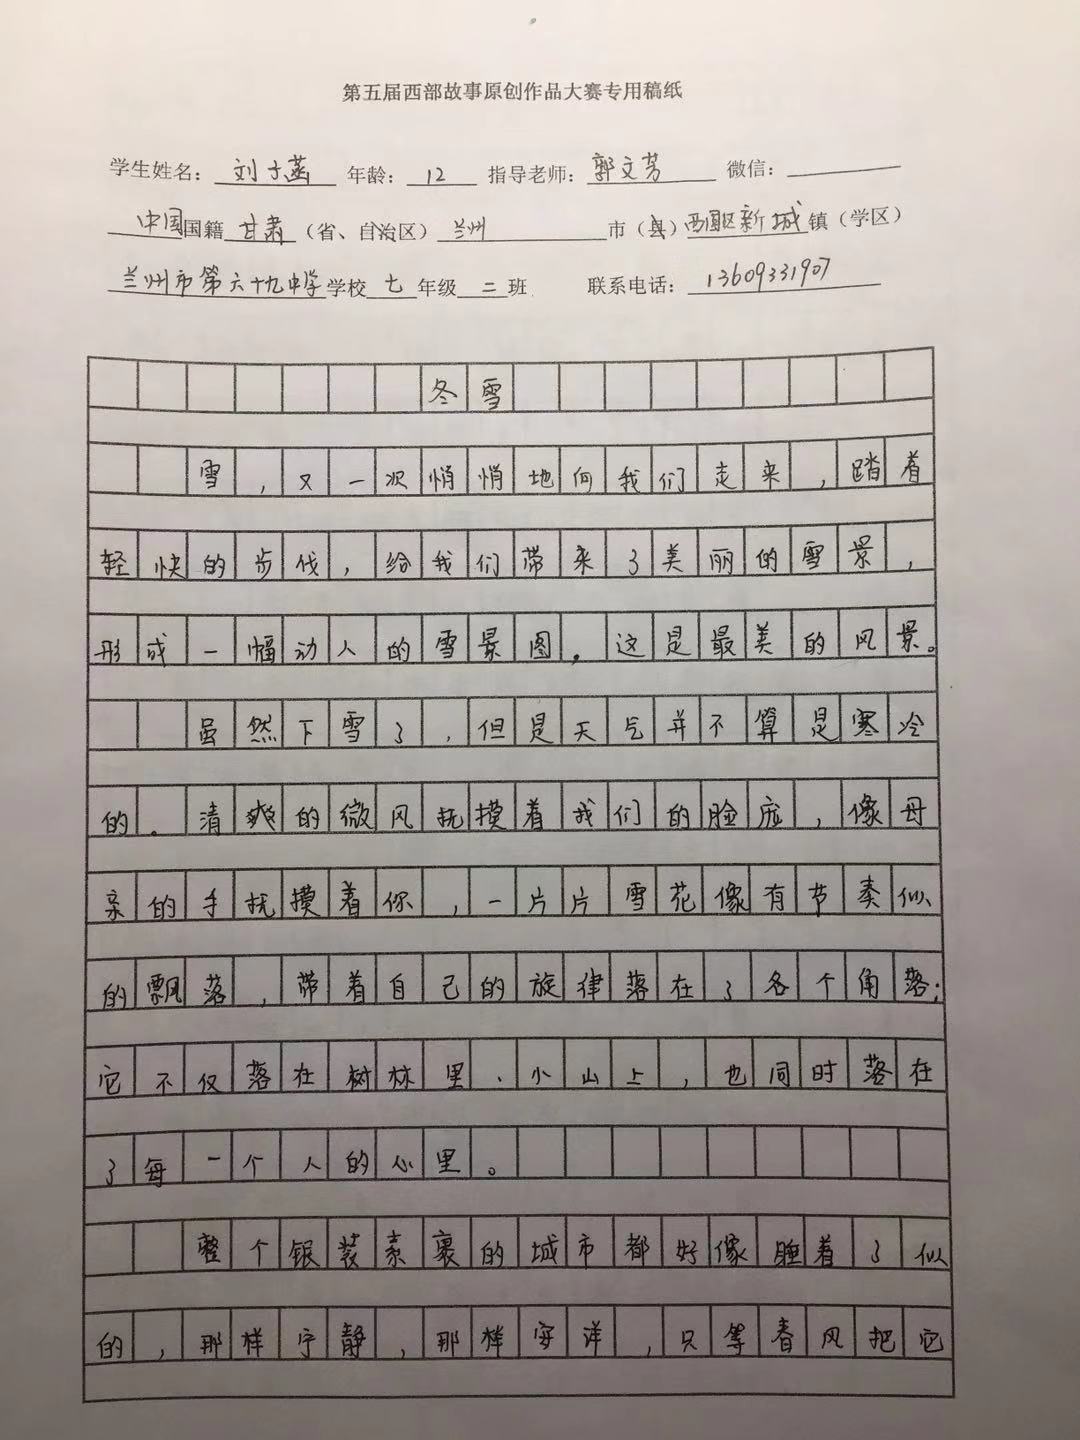 第五届西部故事原创作品大赛专用稿纸
学生姓名：刘子菡 年龄：12 指导老师：郭文芳 微信：
中国国籍 甘肃（省、自治区）兰州 市（县）西固区新城镇（学区）
兰州市第六十九中学学校 七 年级 二 班 联系电话：13609331907
冬雪
雪，又一次悄悄地向我们走来，踏着
轻快的步伐，给我们带来了美丽的雪景，
形成一幅动人的雪景图。这是最美的风景。
虽然下雪了，但是天气并不算是寒冷
的。清爽的微风抚摸着我们的脸庞，像母
亲的手抚摸着你，一片片雪花像有节奏似
的飘落，带着自己的旋律落在了各个角落；
它不仅落在树林里、小山上，也同时落在
了每一个人的心里。
整个银装素裹的城市都好像睡着了似
的，那样宁静，那样安详，只等春风把它